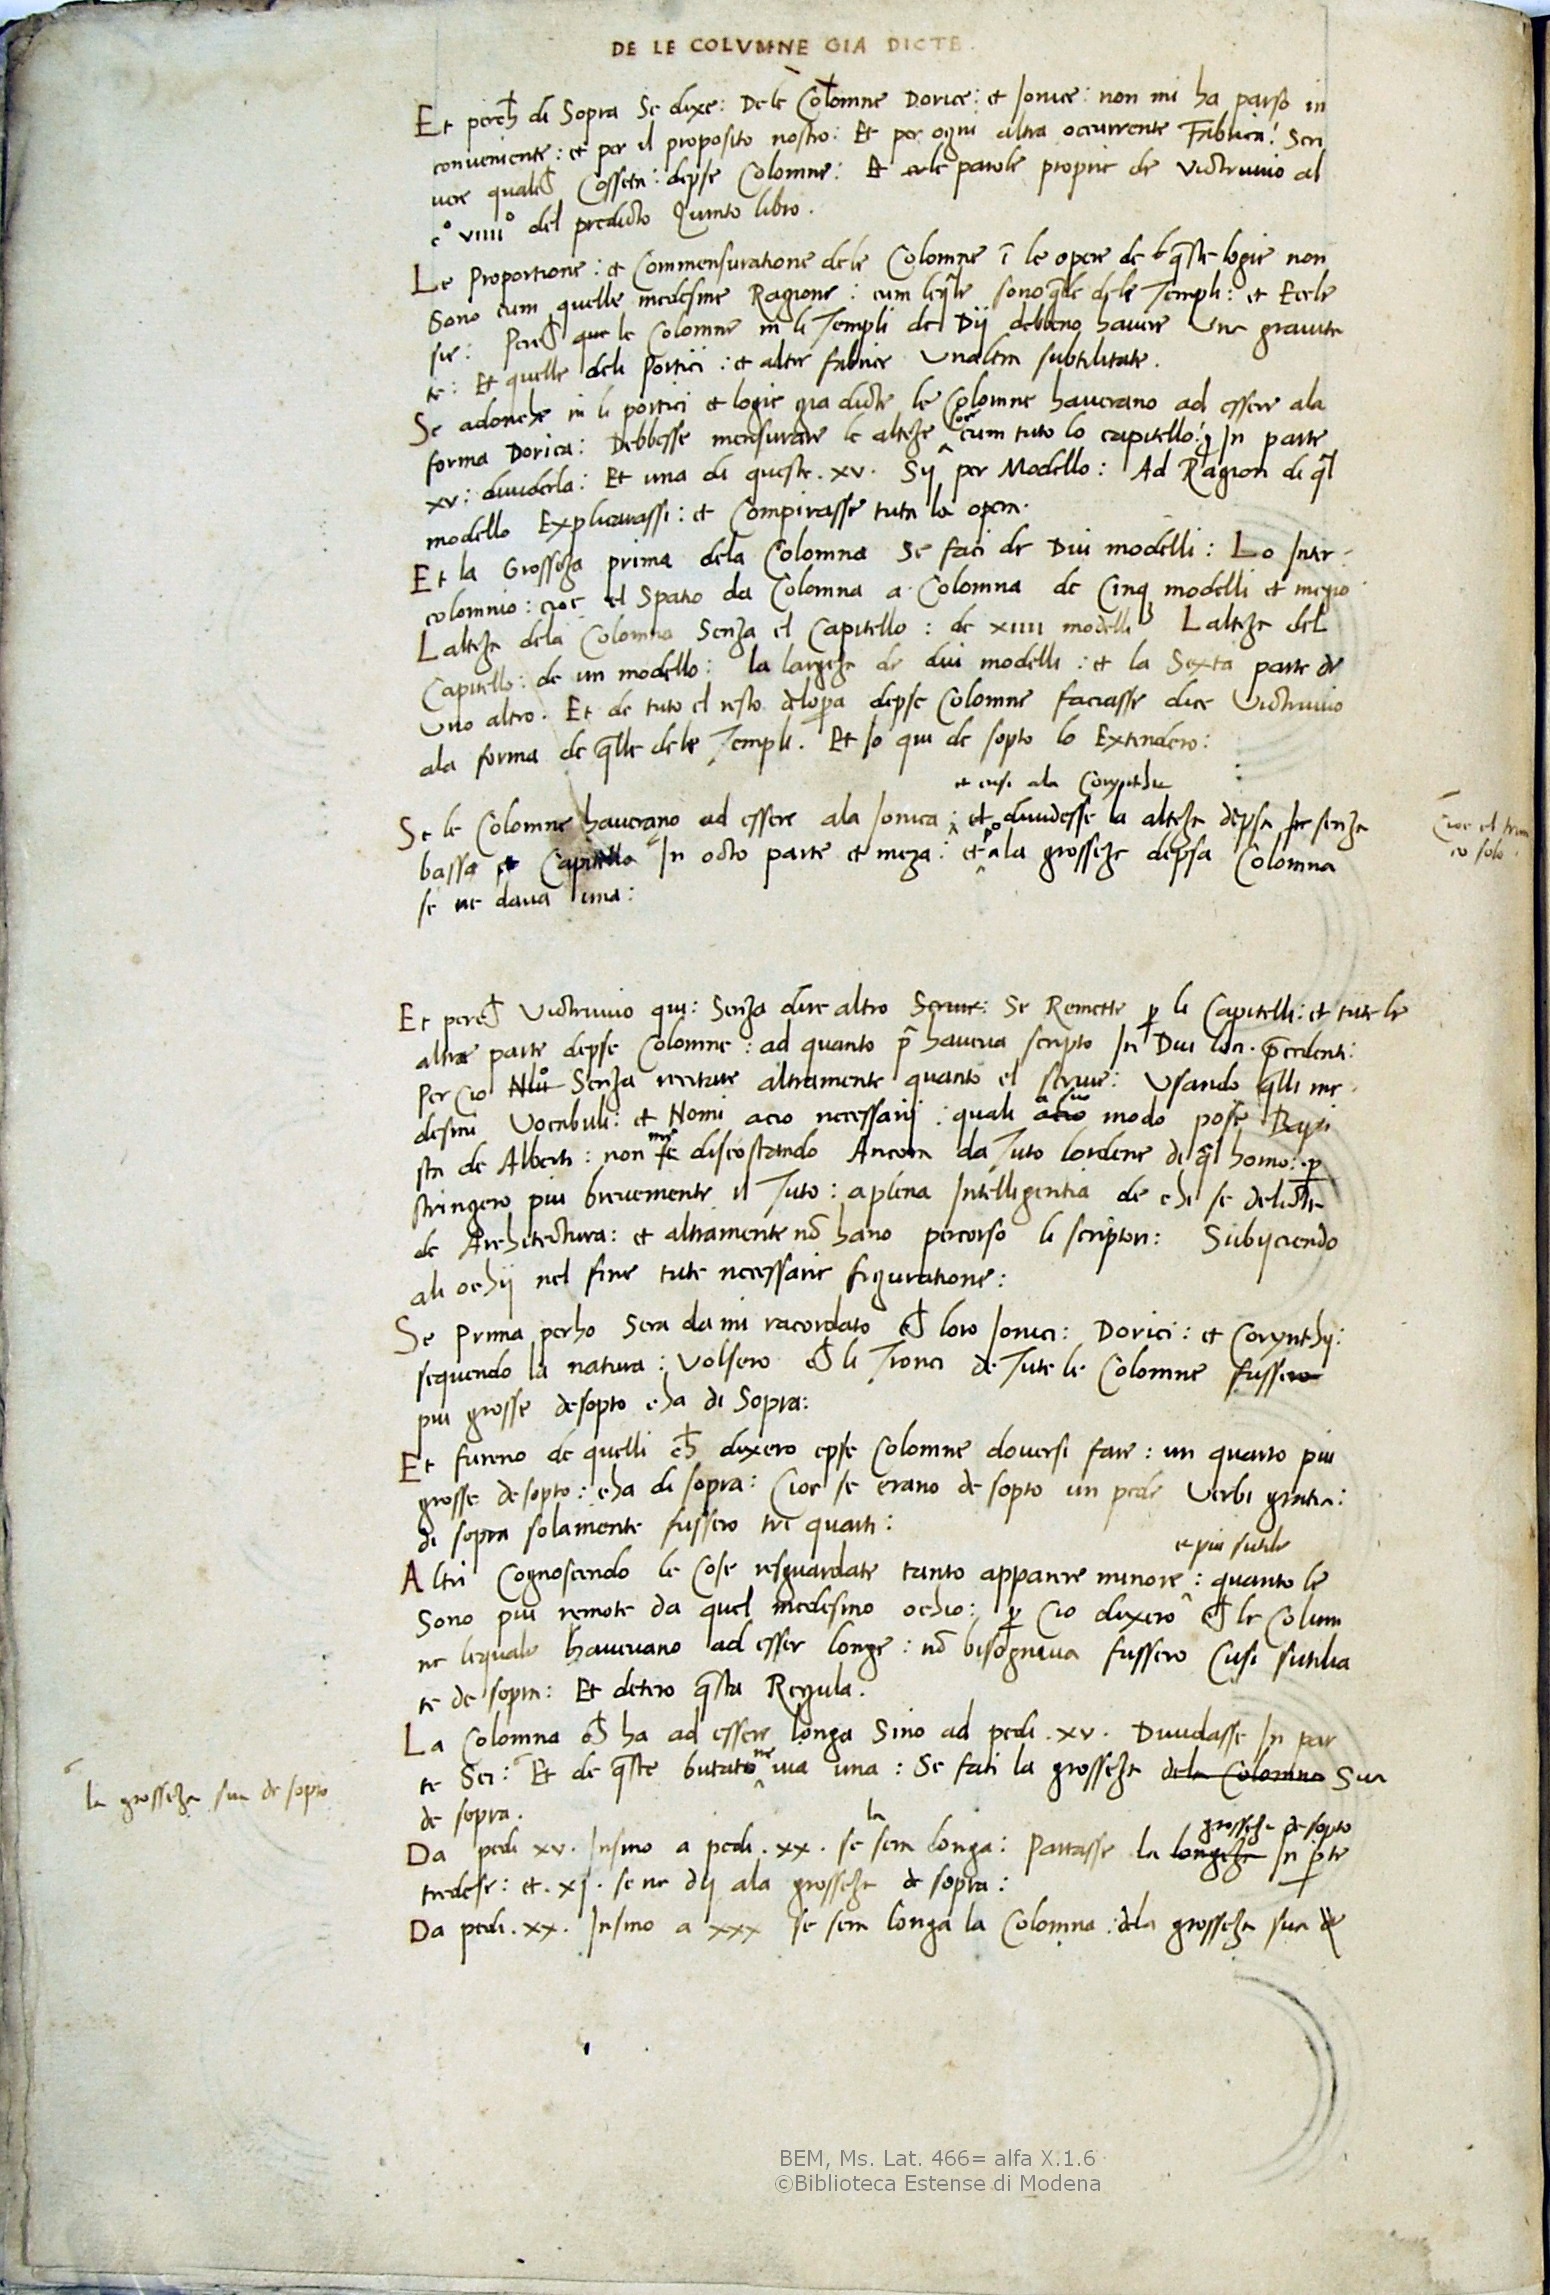 DE LE COLVMNE GIA DICTE.
Et perch di Sopra Se dixe: De le Colomne Dorice: et Jonice: non mi ha parso in
conueniente: et per il proposito nostro: Et per ogni altra occurrente Fabrica: Scri
uere quale Cosseta: depse Colomne: Et parole proprie de Victruuio al
c° viiii° del predicto Quinto libro.
Le Proportione: et Commensuratione dele Colomne ī le opere de q̄ste logie non
Sono cum quelle medesme Ragione: cum leq̄le sono q̄le dele Templi: et Eccle
sie: Perch que le Colomne in li Templi de Dij debbeno hauere Una grauita
te: Et quelle deli Portici: et altre fabrice Unaltra subtilitate.
Se adonche in li portici et logie gia dicte le Colomne hauerano ad essere ala
forma Dorica: Debbesse mensurare le alteze cum tuto lo capitello: In parte
xv: diuiderla: Et una di queste .xv. Sij per Modello: Ad Ragion di q̄l
modello Explicarassi: et Compirasse tuta la opera.
Et la Grosseza prima dela Colomna Se faci de Dui modelli: Lo Inter-
colomnio: cioe el Spatio da Colomna a Colomna de Cinq modelli et mezo
Lalteza dela Colomna Senza el Capitello: de xiiii modelli Lalteza del
Capitello: de un modello: la largeza de dui modelli: et la Sexta parte de
Uno altro. Et de tuto el resto delopa depse Colomne faciasse dice Victruuio
ala forma de q̄lle dele Templi. Et Io qui de sopto lo Extendero:
et cusi ala Corynthia
Se le Colomne hauerano ad essere ala Jonica: et diuidesse la alteza depsa senza
Cioe el tron
co solo.
bassa et Capitello In octo parte et meza: et ala grosseza depsa Colomna
se ne daua una:
Et perch Victruuio qui: Senza dire altro Scriue: Se Remette p li Capitelli: et tute le
altre parte depse Colomne: ad quanto p̄ haueua scripto In Dui loci p̄cedenti:
Per Cio Senza recitare altramente quanto el scriue: Usando q̄lli me-
desmi Vocabuli: et Nomi acio necessarij: quali modo pose Bapti
sta de Alberti: non discostando Ancora da Tuto lordine di q̄l homo: p
stringero piu breuemente il Tuto: aplena Intelligentia de chi se delicta
de Architectura: et altramente nō hano percorso li scriptori: Subijciendo
ali ochij nel fine tute necessarie figuratione:
Se Prima perho Sera da mi racordato ch loro Jonici: Dorici: et Corynthij:
sequendo la natura: Volsero ch li Tronci de Tute le Colomne fussero
piu grosse desopto cha di Sopra:
Et fureno de quelli ch dixero epse Colomne douersi fare: un quarto piu
grosse desopto: cha di sopra: Cioe se erano de sopto un pede Verbi gratia:
di sopra solamente fussero tre quarti:
e piu sutile
Altri Cognoscendo le Cose resguardate tanto apparere minore: quanto le
Sono piu remote da quel medesmo ochio: p Cio dixero ch le Colum
ne lequale haueuano ad esser longe: nō bisognaua fussero Cusi sutilia
te de sopra: Et detero q̄sta Regula.
La Colomna ch ha ad essere longa Sino ad pedi .xv. Diuidasse In par
la grosseza sua de sopto
te Sei: Et de q̄ste butato ne uia una: Se faci la grosseza dela Colomna Sua
de sopra.
la grosseza de sopto
Da pedi xv. Insino a pedi .xx. se sera longa: Partasse la longeza In p̱te
tredese: et .xj. se ne dij ala grosseza de sopra:
Da pedi .xx. Insino a xxx se sera longa la Colomna: dela grosseza sua de
BEM, Ms. Lat. 466= alfa X.1.6
©Biblioteca Estense di Modena